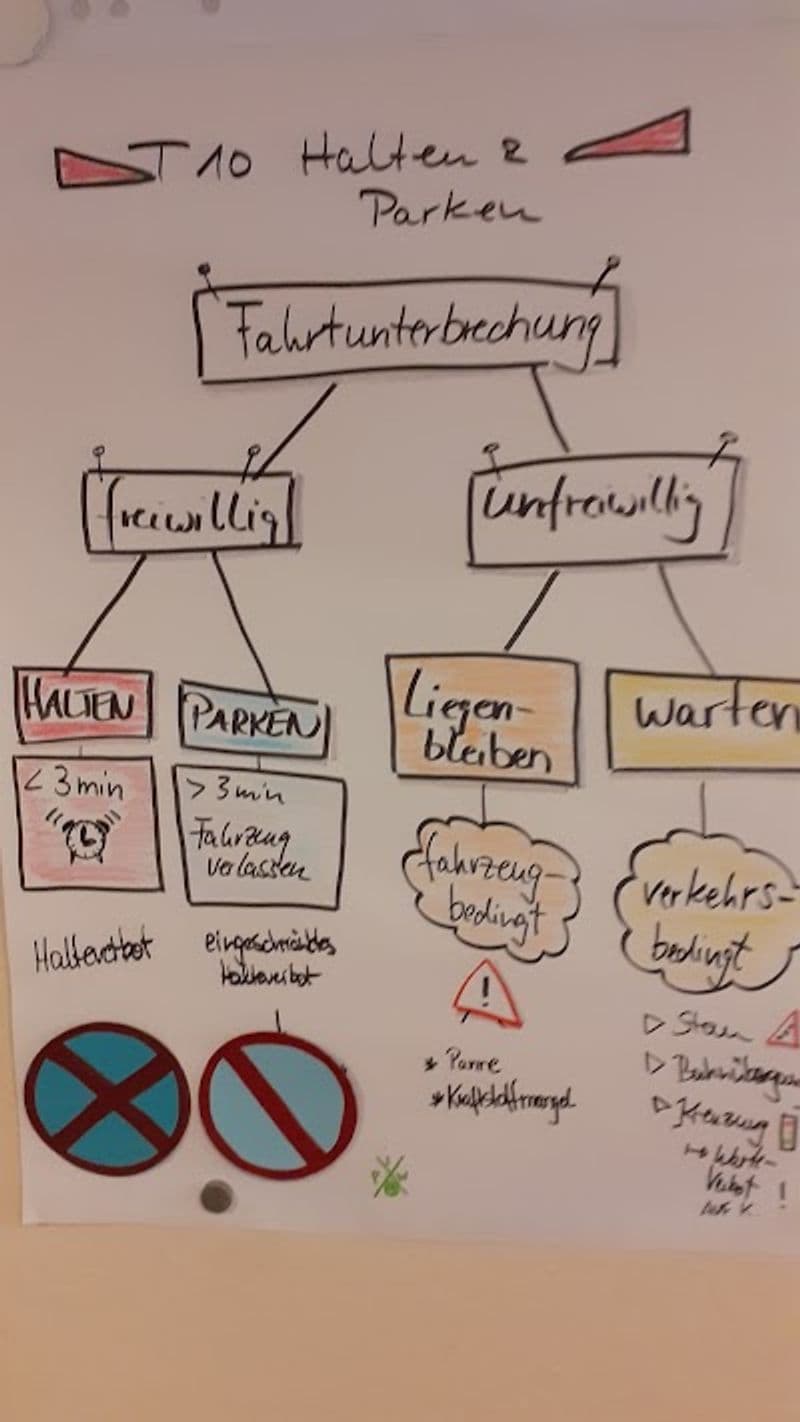 T 10 Halten &
Parken
Fahrtunterbrechung
freiwillig
unfreiwillig
HALTEN
PARKEN
Liegen-
bleiben
warten
< 3 min
> 3 min
Fahrzeug
verlassen
fahrzeug-
bedingt
verkehrs-
bedingt
Halteverbot
eingeschränktes
Halteverbot
!
* Panne
* Kraftstoffmangel
▷ Stau
▷ Bahnübergan
▷ Kreuzung
→ Warte-
verbot !